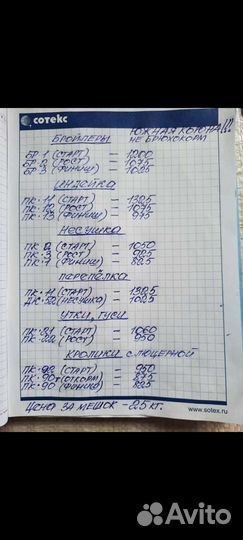 сотекс
ЮЖНАЯ КОРОНА!!!
БРОЙЛЕРЫ НЕ БРЮХОКОРМ
БР-1 (СТАРТ) - 1200
БР-2 (РОСТ) - 1075
БР-3 (ФИНИШ) - 1025
ИНДЕЙКА
ПК-11 (СТАРТ) - 1325
ПК-12 (РОСТ) -
ПК-13 (ФИНИШ) - 975
НЕСУШКА
ПК-2 (СТАРТ) - 1050
ПК-3 (РОСТ) - 925
ПК-1 (ФИНИШ) - 825
ПЕРЕПЁЛКА
ПК-11 (СТАРТ) - 1325
ДК-52 (НЕСУШКА) - 1025
УТКИ, ГУСИ
ПК-21 (СТАРТ) - 1060
ПК-22 (РОСТ) - 950
КРОЛИКИ С ЛЮЦЕРНОЙ
ПК-92 (СТАРТ) - 950
ПК-90 (ОТКОРМ) - 875
ПК-90 (ФИНИШ) - 825
www.sotex.ru
ЦЕНА ЗА МЕШОК - 25 КГ.
Avito